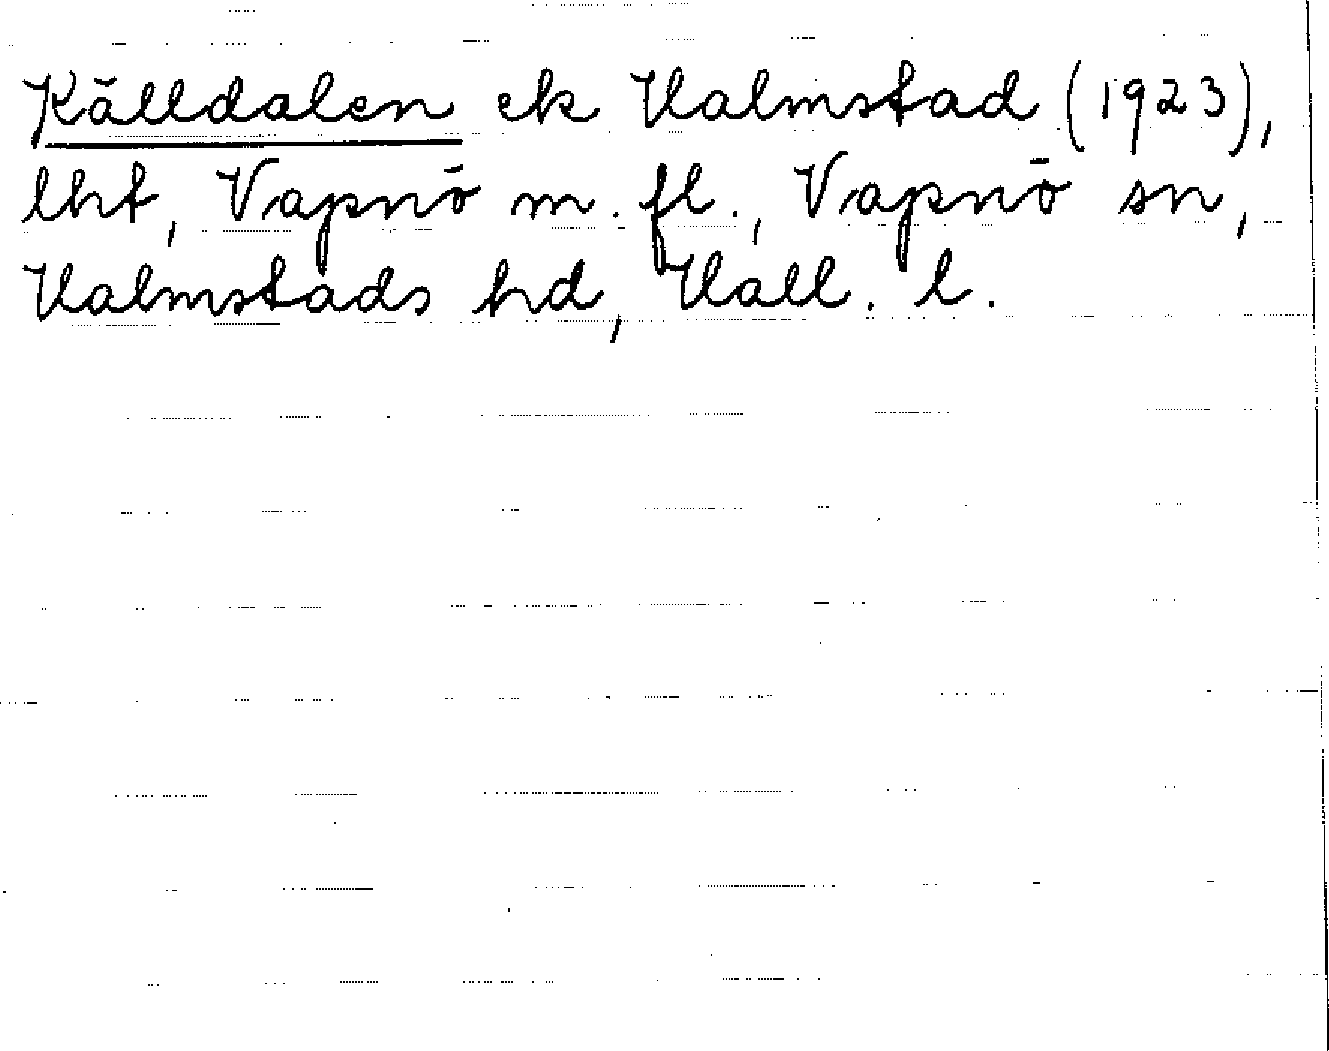 Källdalen ek Halmstad (1923),
lht, Vapnö m. fl., Vapnö sn,
Halmstads hd, Hall. l.